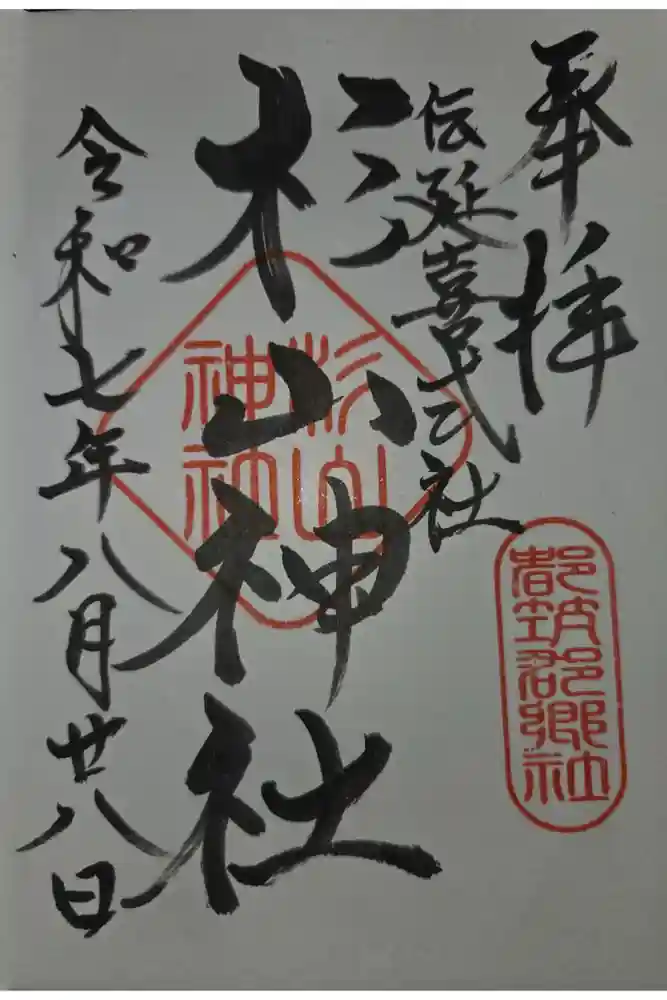 奉拝
伝延喜式乙社
杉山神社
令和七年八月廿八日
杉山
神社
都筑郡郷社